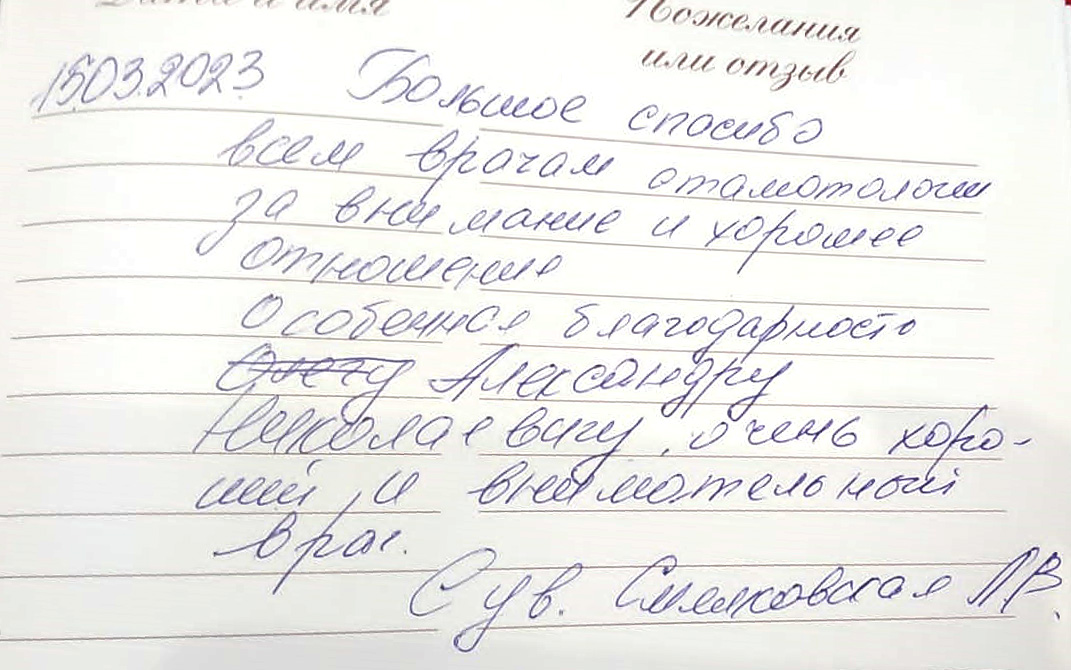 Дата и имя
Пожелания
или отзыв
15.03.2023 Большое спасибо
всем врачам стамотологии
за внимание и хорошее
отношение
Особенная благодарность
Олегу Александру
Николаевичу, очень хоро-
ший, и внимательный
врач.
С ув. Смелковская Л.В.